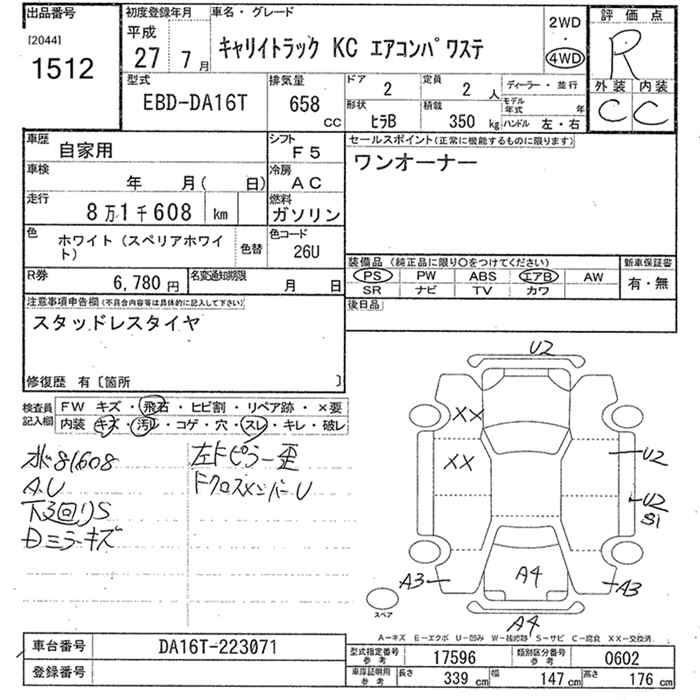 出品番号
[2044]
1512
初度登録年月
平成
27 7月
車名・グレード
キャリイトラック KC エアコンパワステ
2WD
・
4WD
評価点
R
外装 内装
C C
型式
EBD-DA16T
排気量
658 CC
ドア
2
定員
2 人
形状
ヒラB
積載
350 kg
ディーラー・並行
モデル年式 年
ハンドル 左・右
車歴
自家用
シフト
F5
車検
年 月( 日)
冷房
AC
走行
8万1千608 km
燃料
ガソリン
色
ホワイト(スペリアホワイト)
色替
色コード
26U
R券
6,780 円
名変通知期限
月 日
セールスポイント(正常に機能するものに限ります)
ワンオーナー
装備品(純正品に限り○をつけてください)
PS PW ABS エアB AW
SR ナビ TV カワ
新車保証書
有・無
後日品
注意事項申告欄(不具合内容等は具体的に記入して下さい)
スタッドレスタイヤ
修復歴 有〔箇所 〕
検査員記入欄
FW キズ・飛石・ヒビ割・リペア跡・×要
内装 キズ・汚レ・コゲ・穴・スレ・キレ・破レ
81608
A.U
下廻りS
Dミラーキズ
左Fピラー歪
FクロスメンバーU
U2
XX
XX
U2
U2
S1
A3
A4
A3
A4
スペア
A－キズ E－エクボ U－凹み W－補修跡 S－サビ C－腐食 XX－交換済
車台番号
DA16T-223071
登録番号
型式指定番号 参考
17596
類別区分番号 参考
0602
車庫証明用 参考
長さ 339 cm
幅 147 cm
高さ 176 cm